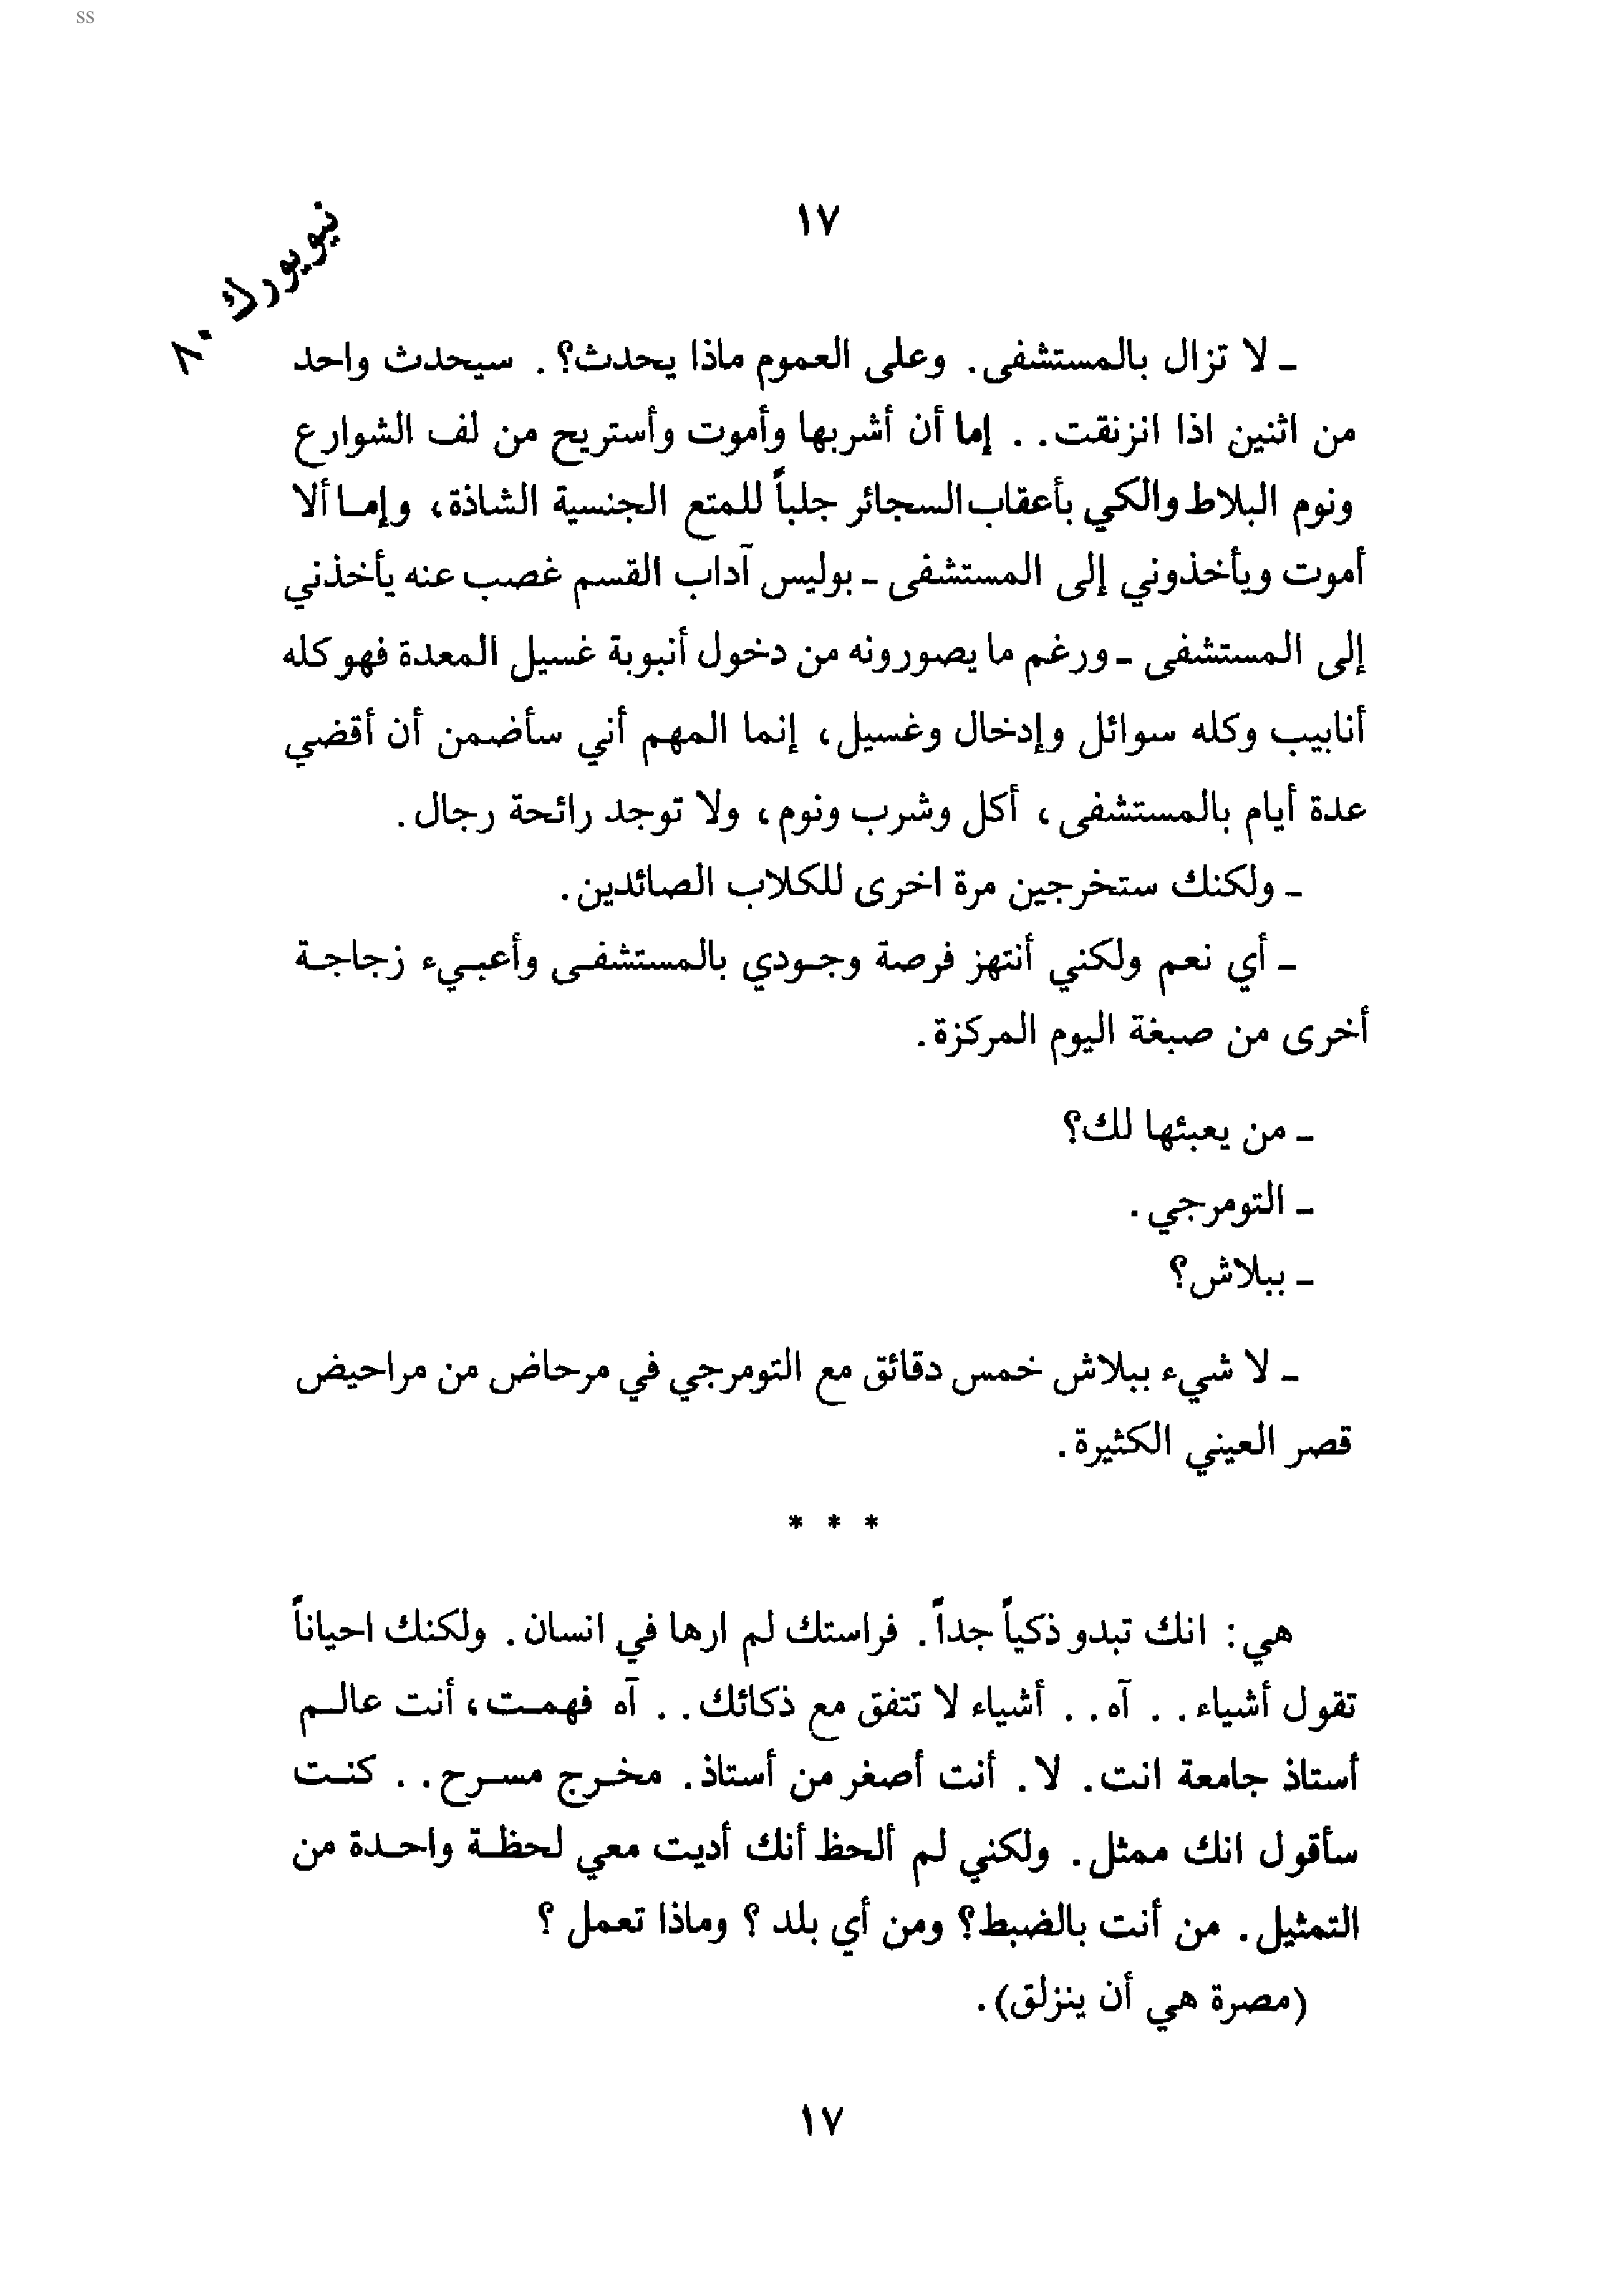 SS
١٧
نيويورك ٨٠
ـ لا تزال بالمستشفى. وعلى العموم ماذا يحدث؟. سيحدث واحد
من اثنين اذا انزنقت. . إما أن أشربها وأموت وأستريح من لف الشوارع
ونوم البلاط والكي بأعقاب السجائر جلباً للمتع الجنسية الشاذة، وإما ألا
أموت ويأخذوني إلى المستشفى ـ بوليس آداب القسم غصب عنه يأخذني
إلى المستشفى ـ ورغم ما يصورونه من دخول أنبوبة غسيل المعدة فهو كله
أنابيب وكله سوائل وإدخال وغسيل، إنما المهم أني سأضمن أن أقضي
عدة أيام بالمستشفى، أكل وشرب ونوم، ولا توجد رائحة رجال.
ـ ولكنك ستخرجين مرة اخرى للكلاب الصائدين.
ـ أي نعم ولكني أنتهز فرصة وجودي بالمستشفى وأعبيء زجاجة
أخرى من صبغة اليوم المركزة.
ـ من يعبئها لك؟
ـ التومرجي.
ـ ببلاش؟
ـ لا شيء ببلاش خمس دقائق مع التومرجي في مرحاض من مراحيض
قصر العيني الكثيرة.
* * *
هي: انك تبدو ذكياً جداً. فراستك لم ارها في انسان. ولكنك احياناً
تقول أشياء. . آه. . أشياء لا تتفق مع ذكائك. . آه فهمت، أنت عالم
أستاذ جامعة انت. لا. أنت أصغر من أستاذ. مخرج مسرح. . كنت
سأقول انك ممثل. ولكني لم ألحظ أنك أديت معي لحظة واحدة من
التمثيل. من أنت بالضبط؟ ومن أي بلد ؟ وماذا تعمل ؟
(مصرة هي أن ينزلق).
١٧